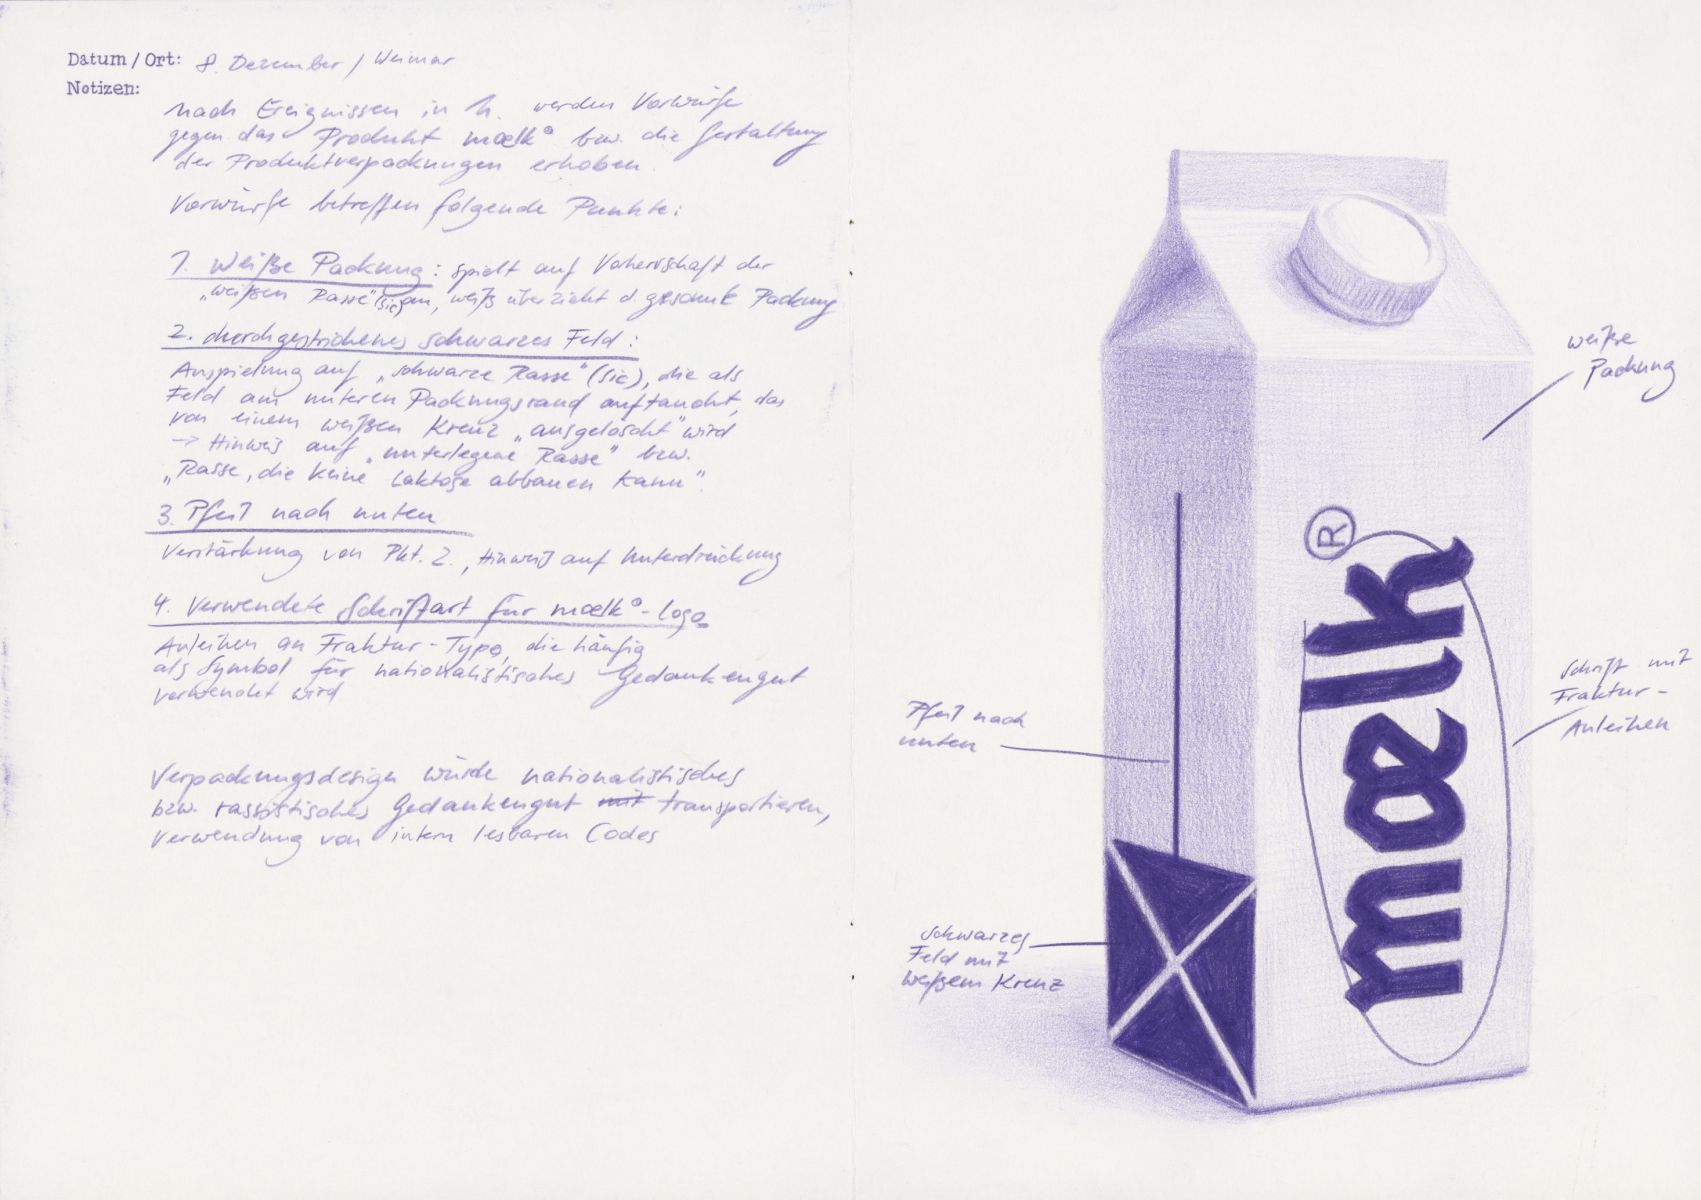 Datum / Ort: 8. Dezember / Weimar
Notizen:
nach Ereignissen in h. werden Vorwürfe
gegen das Produkt mœlk® bzw. die Gestaltung
der Produktverpackungen erhoben.
Vorwürfe betreffen folgende Punkte:
1. Weiße Packung: spielt auf Vorherrschaft der
„weißen Rasse“ (sic) an, weiß überzieht d. gesamte Packung
2. durchgestrichenes schwarzes Feld:
Anspielung auf „schwarze Rasse“ (sic), die als
Feld am unteren Packungsrand auftaucht, das
von einem weißen Kreuz „ausgelöscht“ wird
-> Hinweis auf „unterlegene Rasse“ bzw.
„Rasse, die keine Laktose abbauen kann“.
3. Pfeil nach unten
Verstärkung von Pkt. 2., Hinweis auf Unterdrückung
4. Verwendete Schriftart für mœlk®-Logo
Anleihen an Fraktur-Typo, die häufig
als Symbol für nationalistisches Gedankengut
verwendet wird
Verpackungsdesign würde nationalistisches
bzw. rassistisches Gedankengut mit transportieren,
Verwendung von intern lesbaren Codes
weiße
Packung
mœlk®
Schrift mit
Fraktur-
Anleihen
Pfeil nach
unten
schwarzes
Feld mit
weißem Kreuz